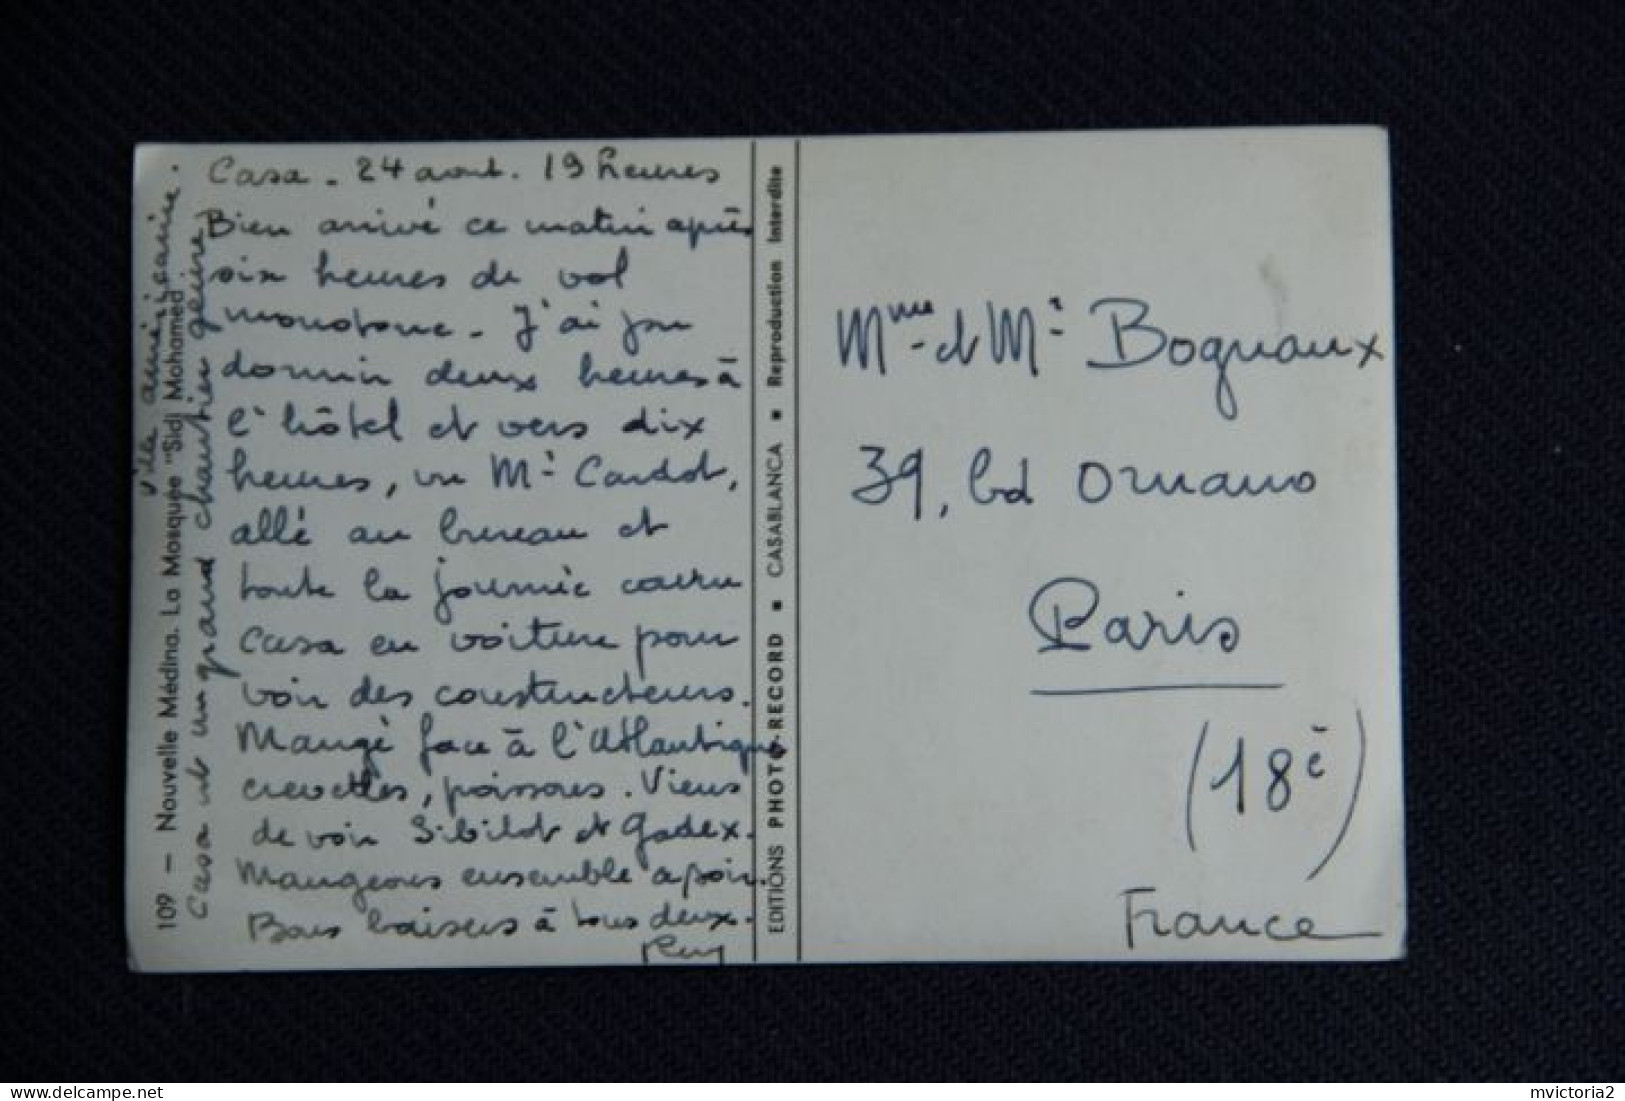 Casa - 24 aout. 19 heures
Bien arrivé ce matin après
six heures de vol
monotone - J'ai pu
dormir deux heures à
l'hôtel et vers dix
heures, vu Mr Cardot,
allé au bureau et
toute la journée couru
Casa en voiture pour
voir des constructeurs.
Mangé face à l'Atlantique
crevettes, poissons. Viens
de voir Sibilot et Gadex.
Mangeons ensemble a soir.
Bons baisers à tous deux.
Casa est un grand chantier genre
ville américaine.
109 — Nouvelle Médina. La Mosquée "Sidi Mohamed"
EDITIONS PHOTO-RECORD ■ CASABLANCA ■ Reproduction Interdite
Mme et Mr Bognaux
39, bd Ornano
Paris
(18è)
France
delcampe.net
mvictoria2